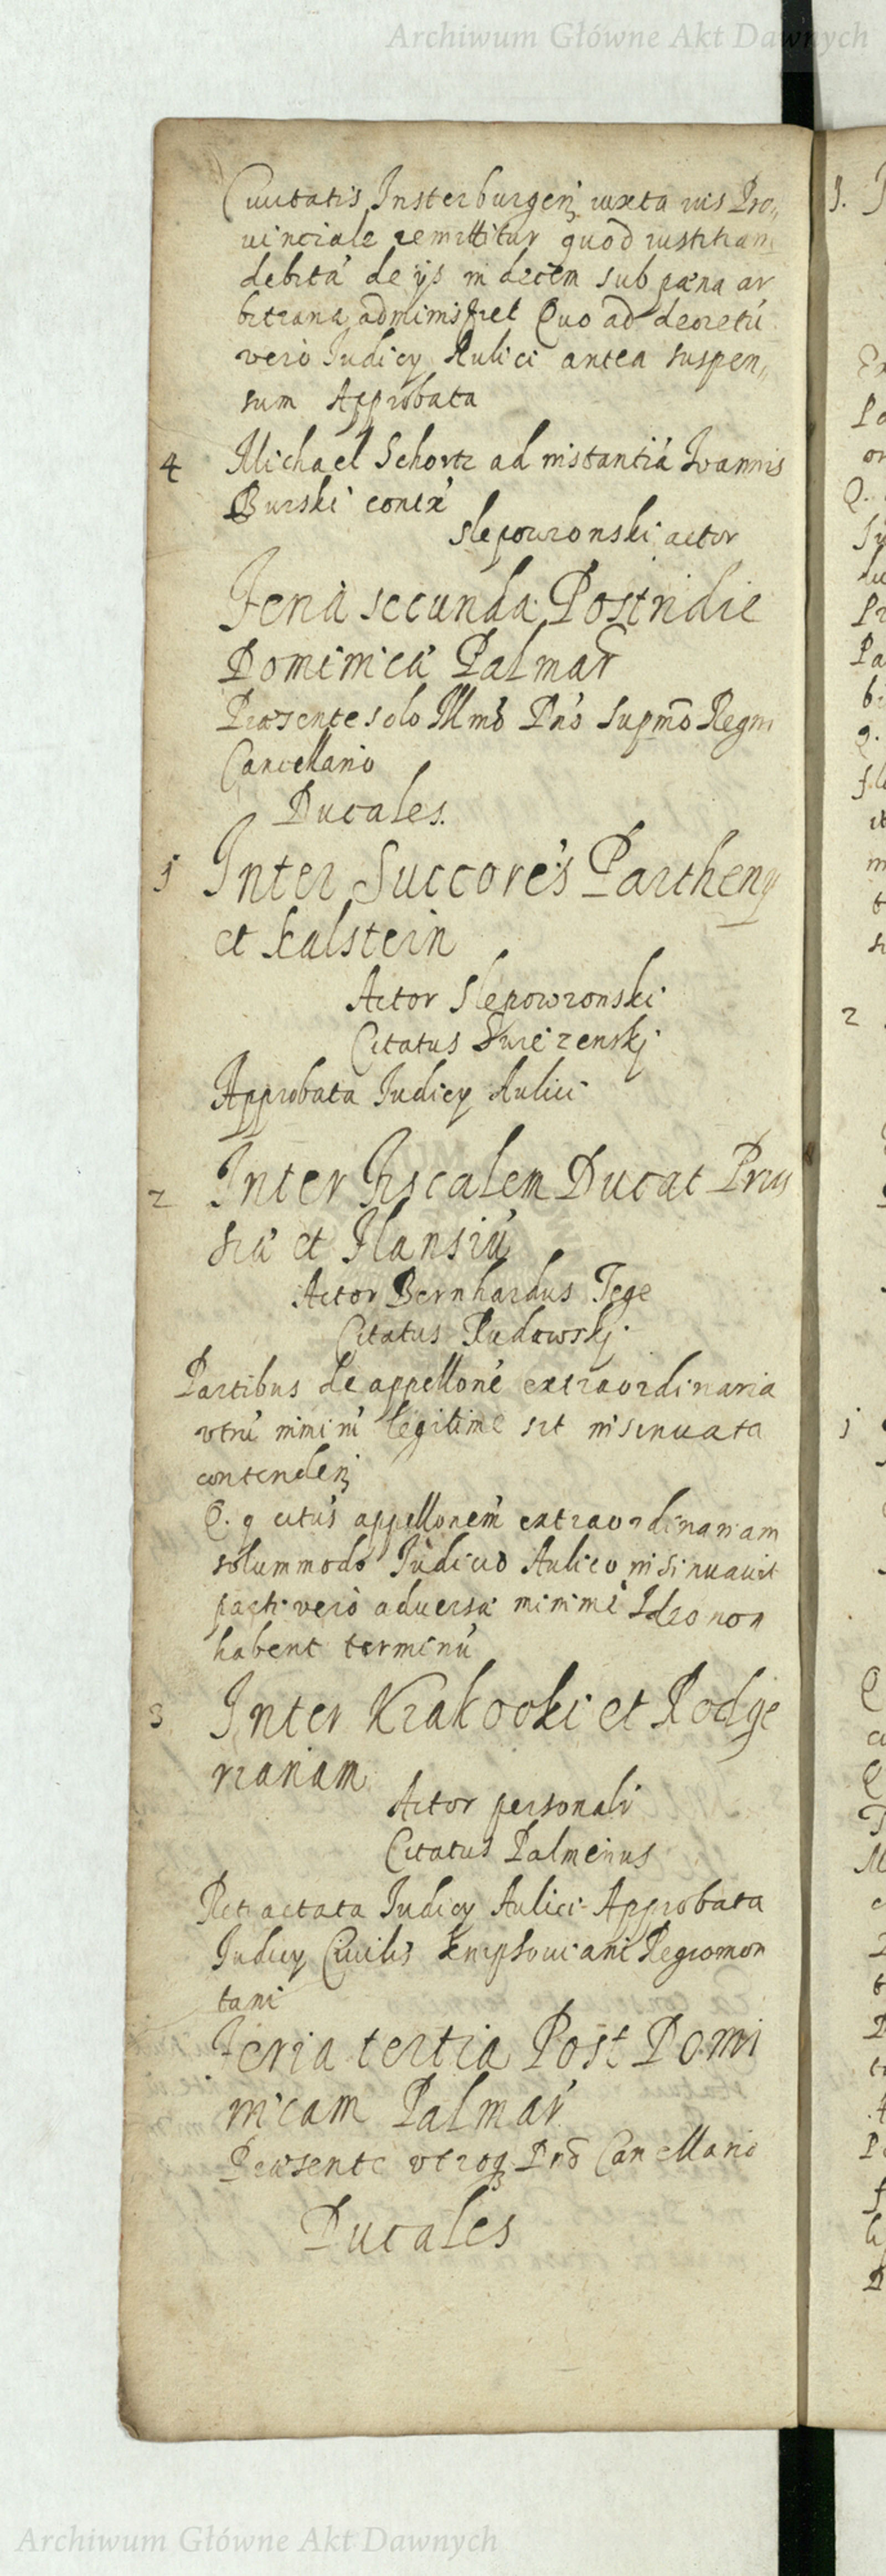 Archiwum Główne Akt Dawnych
Ciuitatis Insterburgen iuxta ius Pro„
uinciale remittitur quod iustitiam
debitā de ijs in decem sub pæna ar
bitraria administret Quo ad decretū
vero Iudicÿ Aulici antea suspen„
sum Approbata
4 Michael Schortz ad instantiā Ioannis
Burski contx
Slepowronski actor
Feria secunda Postridie
Dominicā Palmar
Præsente solo Illmo Dno Supmo Regni
Cancellario
Ducales.
1 Inter Succores Parthenÿ
et Kalstein
Actor Slepowronski
Citatus Swiezenskj
Approbata Iudicÿ Aulici
2 Inter Fiscalem Ducat Prus
siæ et Hansiū
Actor Bernhardus Tege
Citatus Rudowskj
Partibus de appellone extraordinaria
vtrū minimi legitime sit insinuata
contenden
Q. q citus appellonem extraordinariam
solummodo Iudicio Aulico insinuauit
parti vero aduersæ minime Ideo non
habent terminū
3 Inter Krakoski et Rodge
rianam
Actor personalr
Citatus Palmenus
Retractata Iudicÿ Aulici Approbata
Iudicÿ Ciuilis Knipsouiani Regiomon
tani
Feria tertia Post Domi
nicam Palmar
Præsente vtroq Dno Cancellario
Ducales
Archiwum Główne Akt Dawnych